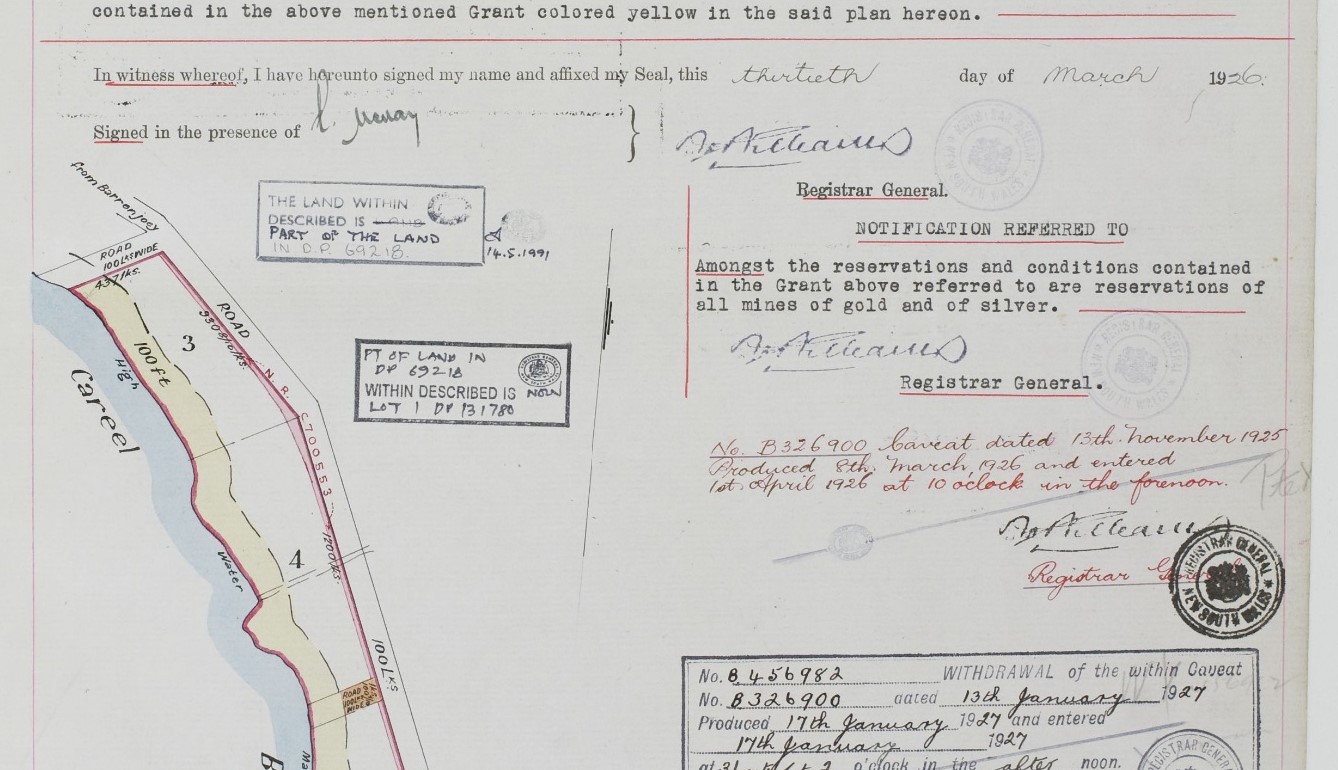 contained in the above mentioned Grant colored yellow in the said plan hereon.
In witness whereof, I have hereunto signed my name and affixed my Seal, this thirtieth day of March 1926.
Signed in the presence of
Registrar General.
NOTIFICATION REFERRED TO
Amongst the reservations and conditions contained
in the Grant above referred to are reservations of
all mines of gold and of silver.
Registrar General.
No. B326900 Caveat dated 13th. November 1925
Produced 8th. March, 1926 and entered
1st. April 1926 at 10 o'clock in the forenoon.
Registrar General
REGISTRAR GENERAL
NEW SOUTH WALES
No. B 456982 WITHDRAWAL of the within Caveat
No. B326900 dated 13th January 1927
Produced 17th January 1927 and entered
17th January 1927
o'clock in the after noon.
from Barrenjoey
ROAD
100LKS WIDE
437lks.
THE LAND WITHIN
DESCRIBED IS
PART OF THE LAND
IN D.P. 69218.
14.5.1991
PT OF LAND IN
DP 69218
WITHIN DESCRIBED IS NOW
LOT 1 DP 131780
ROAD
930 8/10 lks.
N. R. C700553
3
100ft
High
Careel
4
1200lks.
Water
100LKS
ROAD
100LKS
WIDE
B
Ma